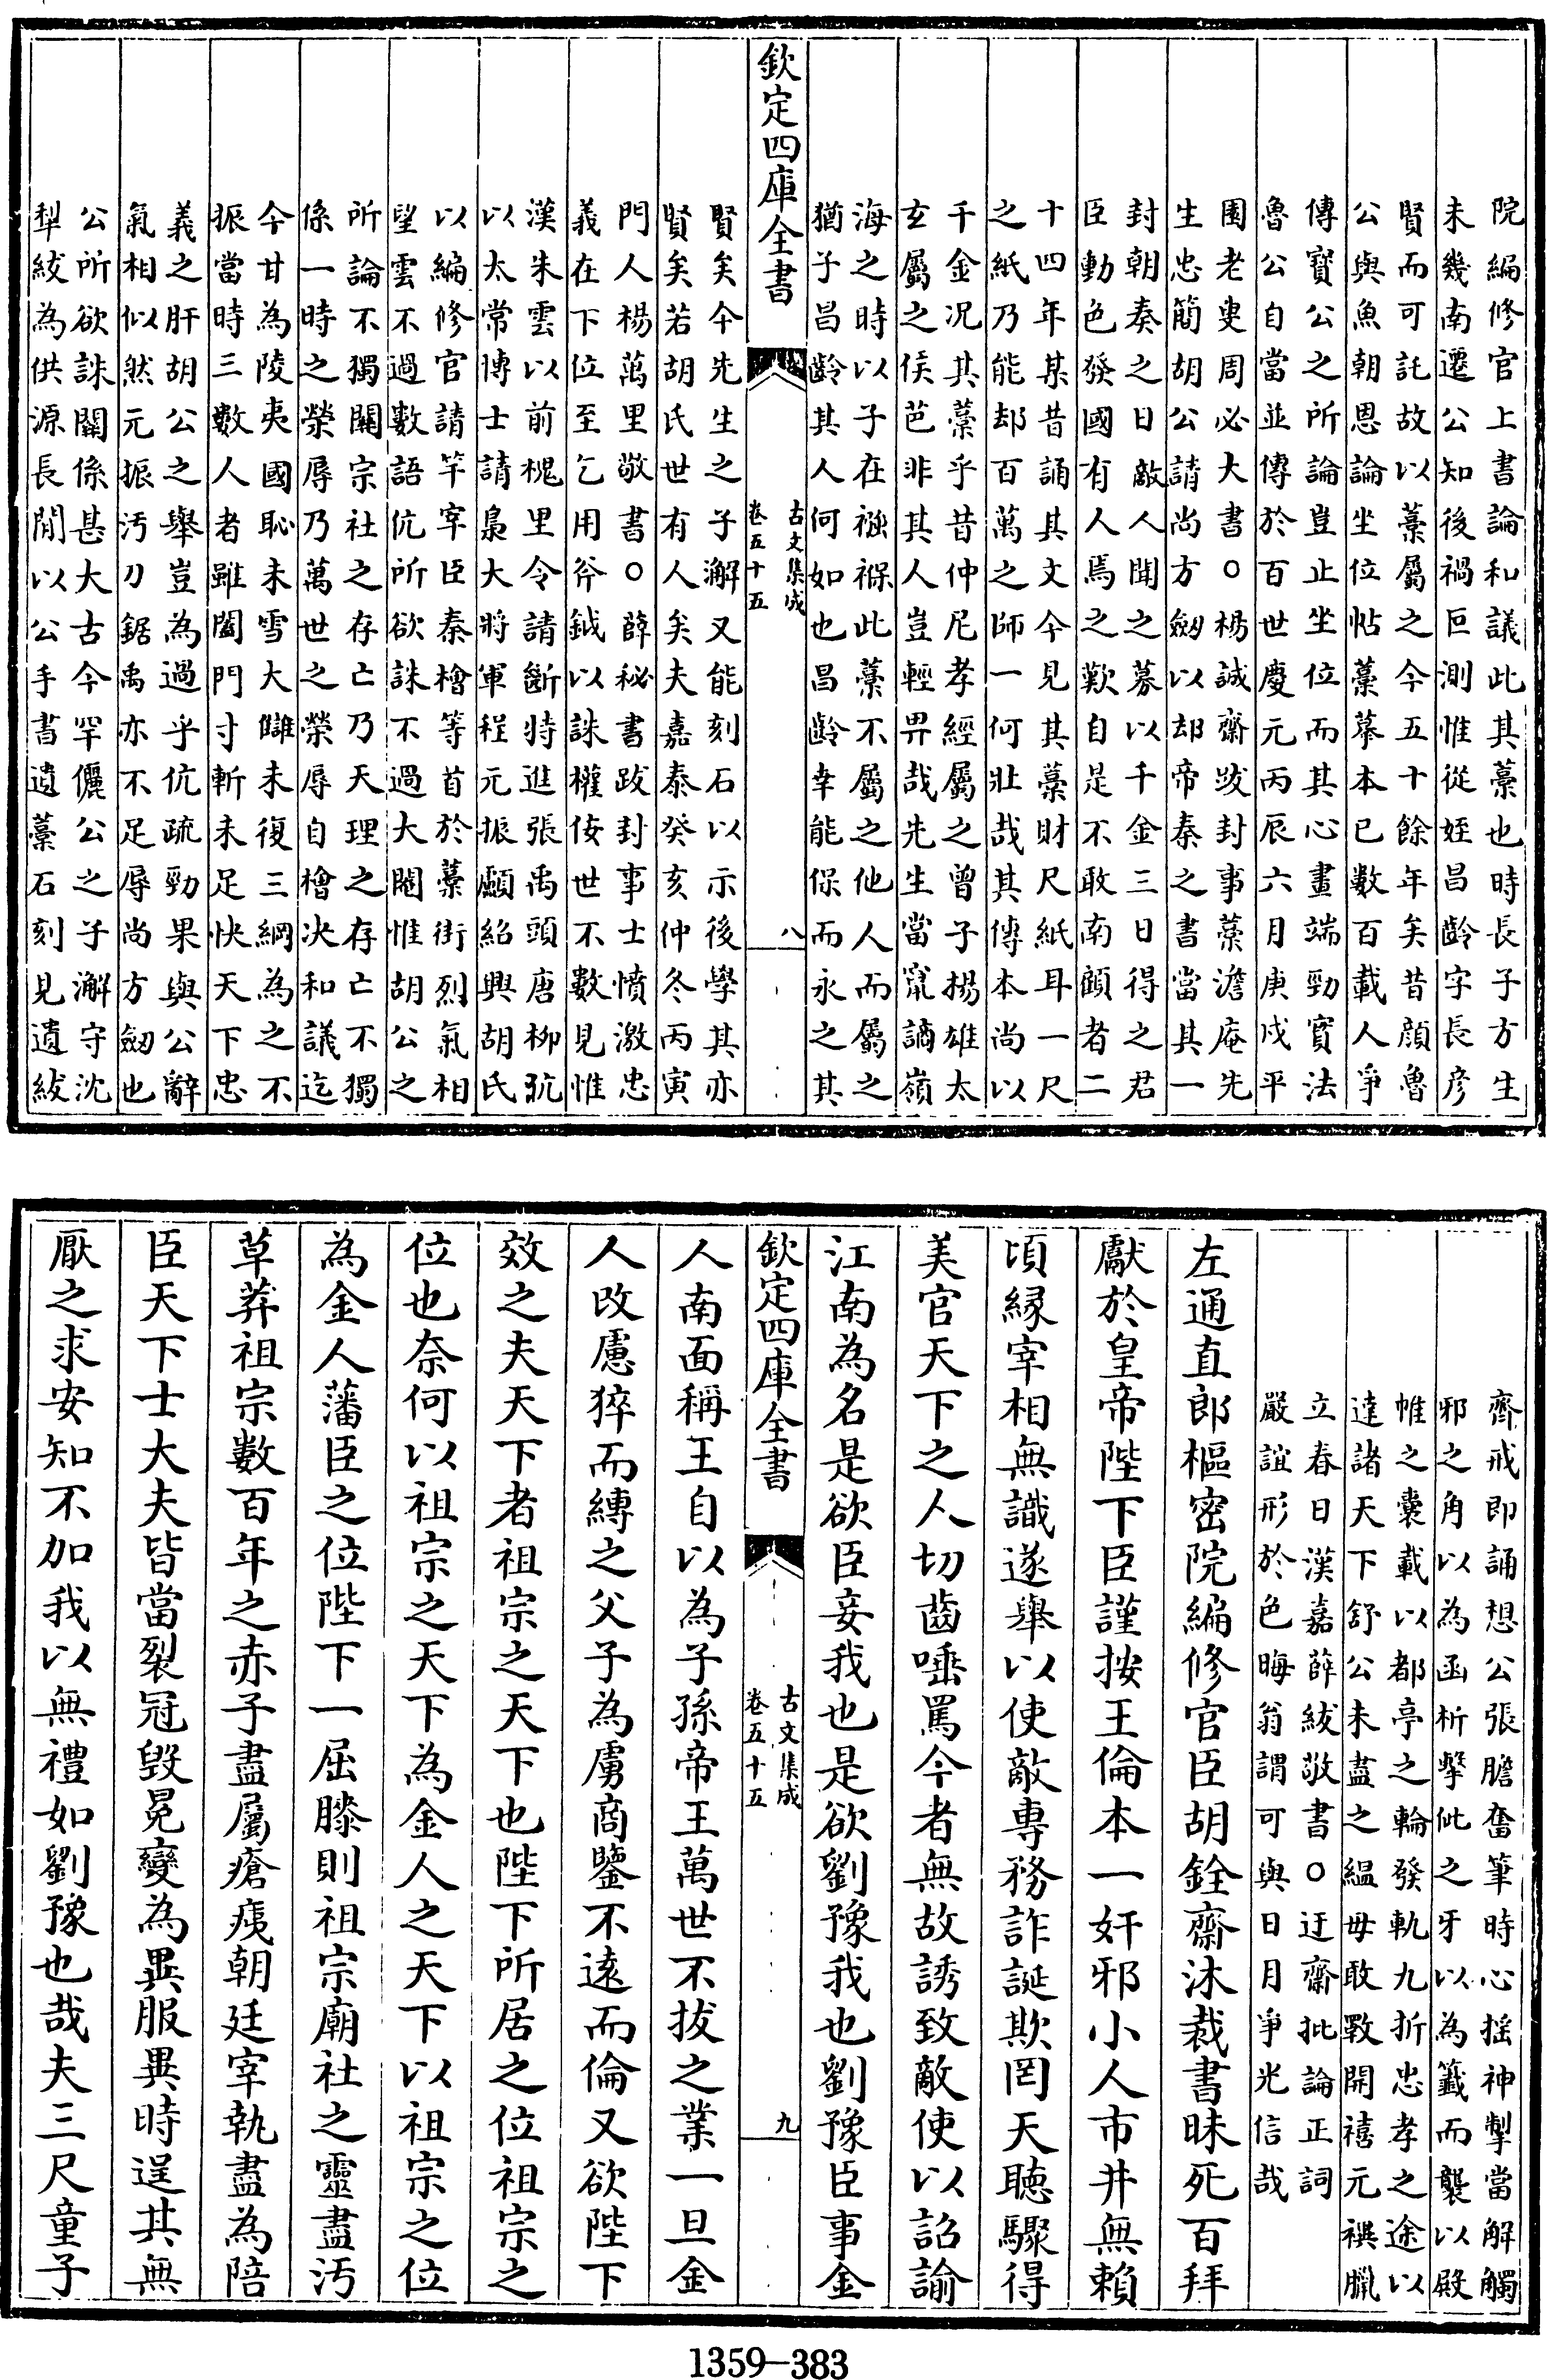 院編修官上書論和議此其藁也時長子方生
未幾南遷公知後禍叵測惟從姪昌齡字長彦
賢而可託故以藁屬之今五十餘年矣昔顔魯
公與魚朝恩論坐位帖藁摹本已數百載人爭
傳寳公之所論豈止坐位而其心畫端勁寳法
魯公自當並傳於百世慶元丙辰六月庚戍平
園老叟周必大書○楊誠齋跋封事藁澹庵先
生忠簡胡公請尚方劒以却帝秦之書當其一
封朝奏之日敵人聞之募以千金三日得之君
臣動色發國有人焉之歎自是不敢南顧者二
十四年某昔誦其文今見其藁財尺紙耳一尺
之紙乃能却百萬之師一何壯哉其傳本尚以
千金况其藁乎昔仲尼孝經屬之曾子揚雄太
玄屬之侯芭非其人豈輕畀哉先生當竄謫嶺
海之時以子在襁褓此藁不屬之他人而屬之
猶子昌齡其人何如也昌齡幸能保而永之其
欽定四庫全書
古文集成
卷五十五
八
賢矣今先生之子澥又能刻石以示後學其亦
賢矣若胡氏世有人矣夫嘉泰癸亥仲冬丙寅
門人楊萬里敬書○薛秘書跋封事士憤激忠
義在下位至乞用斧鉞以誅權佞世不數見惟
漢朱雲以前槐里令請斷特進張禹頭唐柳伉
以太常博士請梟大將軍程元振顱紹興胡氏
以編修官請竿宰臣秦檜等首於藁街烈氣相
望雲不過數語伉所欲誅不過大閹惟胡公之
所論不獨關宗社之存亡乃天理之存亡不獨
係一時之榮辱乃萬世之榮辱自檜决和議迄
今甘為陵夷國恥未雪大讎未復三綱為之不
振當時三數人者雖闔門寸斬未足快天下忠
義之肝胡公之舉豈為過乎伉疏勁果與公辭
氣相似然元振汚刀鋸禹亦不足辱尚方劒也
公所欲誅關係甚大古今罕儷公之子澥守沈
犁紱為供源長閒以公手書遺藁石刻見遺紱
齋戒即誦想公張膽奮筆時心揺神掣當解觸
邪之角以為函析擊佌之牙以為籤而襲以殿
帷之囊載以都亭之輪發軔九折忠孝之途以
達諸天下舒公未盡之緼毋敢斁開禧元禩臘
立春日漢嘉薛紱敬書○迂齋批論正詞
嚴誼形於色晦翁謂可與日月爭光信哉
左通直郎樞密院編修官臣胡銓齋沐裁書昧死百拜
獻於皇帝陛下臣謹按王倫本一奸邪小人市井無賴
頃緣宰相無識遂舉以使敵專務詐誕欺罔天聽驟得
美官天下之人切齒唾罵今者無故誘致敵使以詔諭
江南為名是欲臣妾我也是欲劉豫我也劉豫臣事金
欽定四庫全書
古文集成
卷五十五
九
人南面稱王自以為子孫帝王萬世不拔之業一旦金
人改慮猝而縛之父子為虜商鑒不逺而倫又欲陛下
效之夫天下者祖宗之天下也陛下所居之位祖宗之
位也奈何以祖宗之天下為金人之天下以祖宗之位
為金人藩臣之位陛下一屈膝則祖宗廟社之靈盡汚
草莽祖宗數百年之赤子盡屬瘡痍朝廷宰執盡為陪
臣天下士大夫皆當裂冠毁冕變為異服異時逞其無
厭之求安知不加我以無禮如劉豫也哉夫三尺童子
1359—383